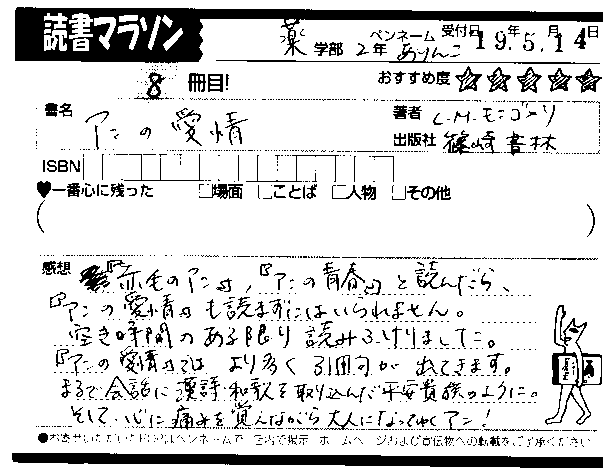 読書マラソン
薬 学部 2年 ペンネーム ありんこ 受付日 19年5月14日
8 冊目! おすすめ度 ☆☆☆☆☆
書名 アンの愛情 著者 L.M.モンゴメリ
出版社 篠崎書林
ISBN
♥一番心に残った □場面 □ことば □人物 □その他
感想 『赤毛のアン』,『アンの青春』と読んだら、
『アンの愛情』も読まずにはいられません。
空き時間のある限り読みふけりました。
『アンの愛情』では より多く引用句が出てきます。
まるで会話に漢詩・和歌を取り込んだ平安貴族のように。
そして、心に痛みを覚えながら大人になってゆくアン!
●お寄せいただいた ペンネームで 店で掲示 ホームページおよび宣伝物への転載をご了承ください